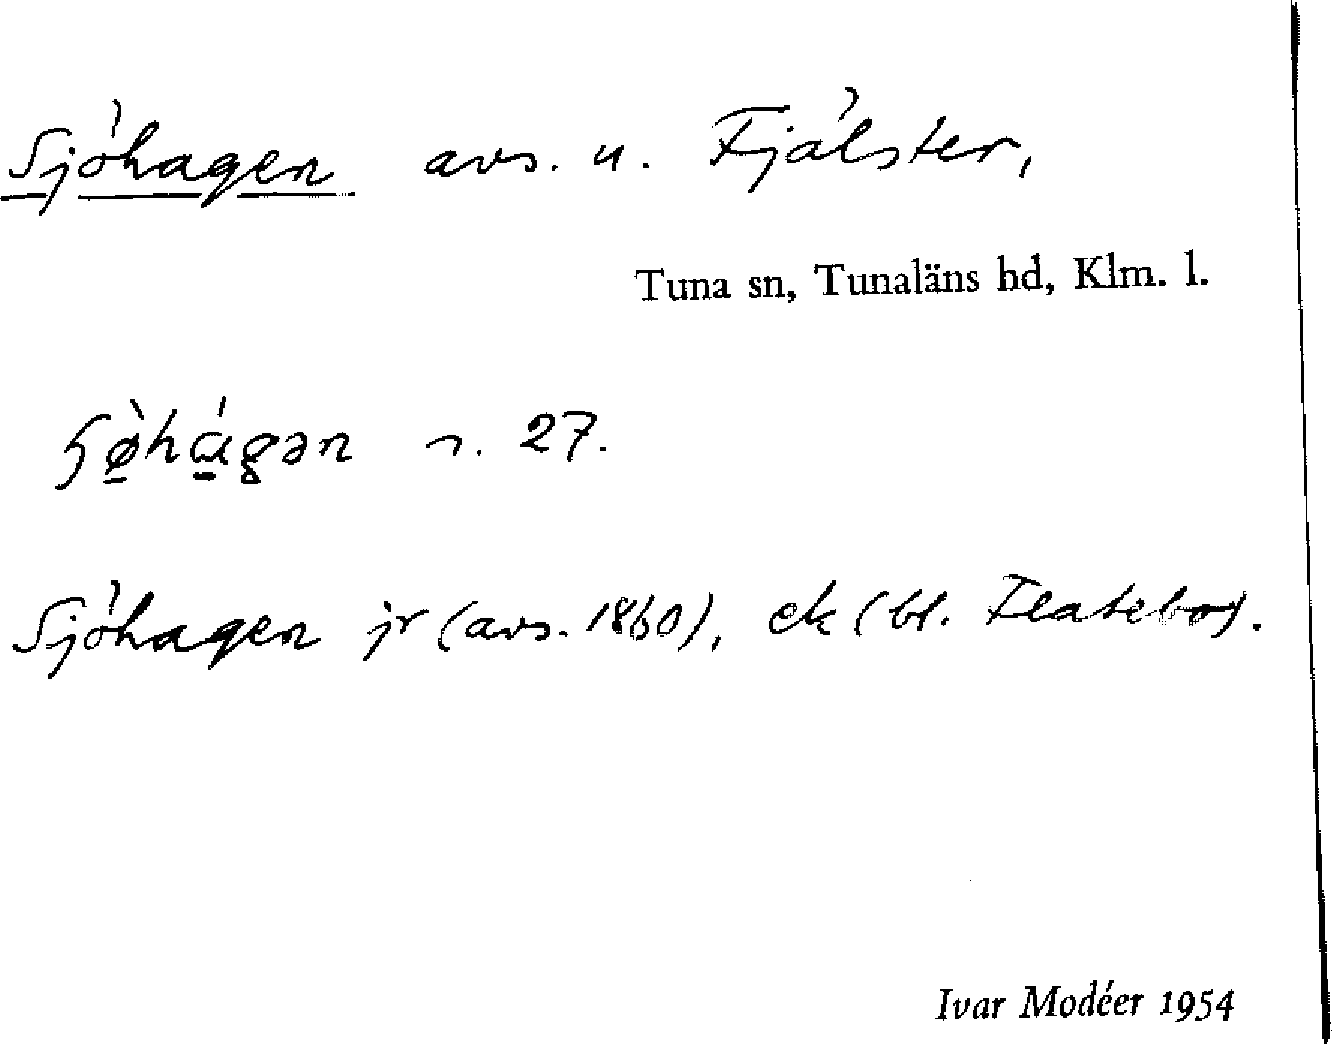 Sjöhagen avs. u. Fjälster,
Tuna sn, Tunaläns hd, Klm. l.
n. 27.
Sjöhagen jr (avs. 1860), ek (bl. Flatebo).
Ivar Modéer 1954